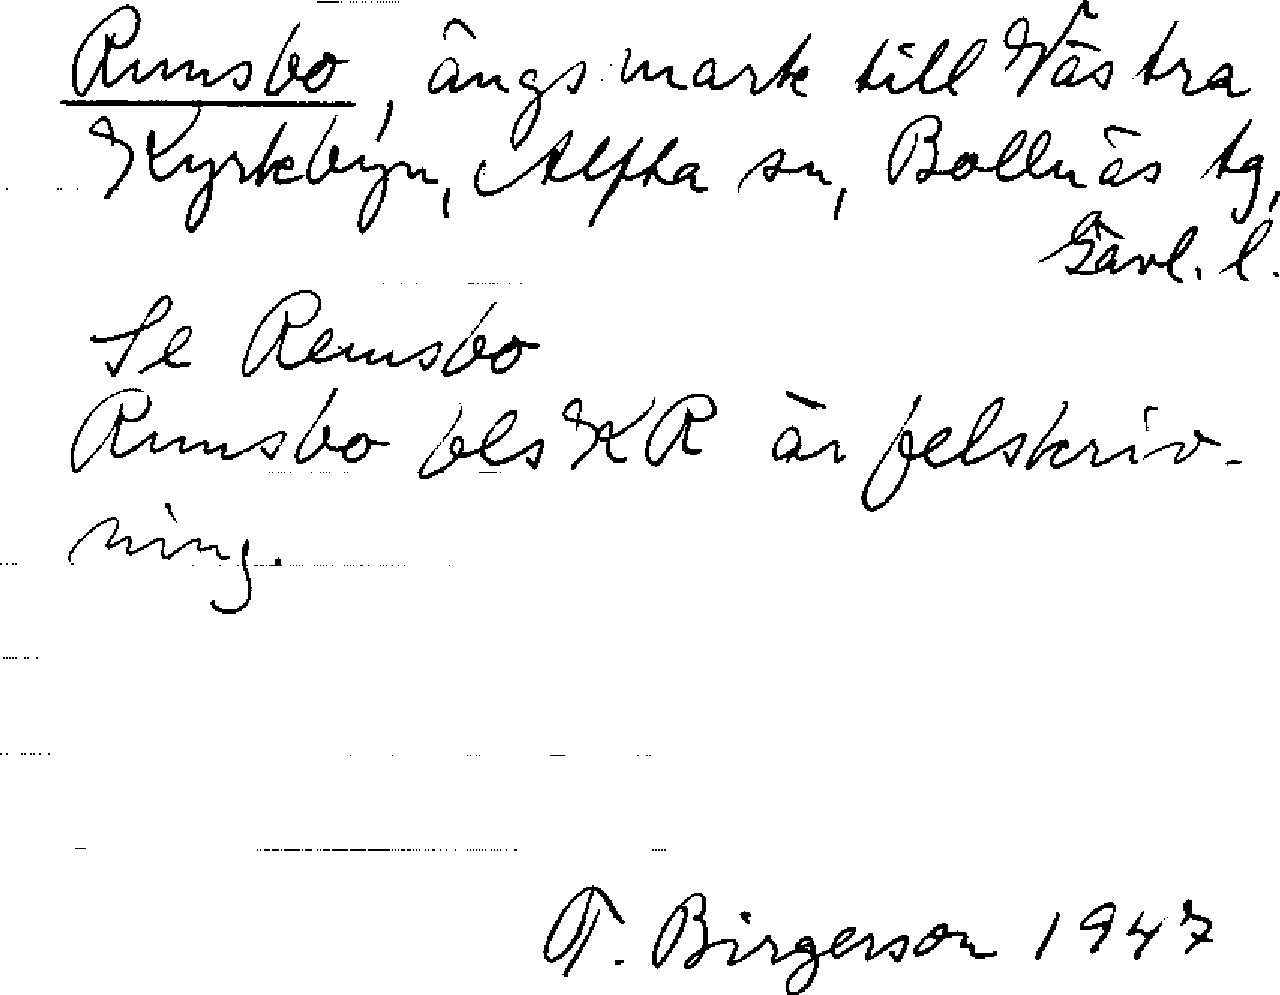 Rumsbo, ängsmark till Västra
Kyrkbyn, Alfta sn, Bollnäs tg,
Gävl. l.
Se Remsbo
Rumsbo bls KR är felskriv-
ning.
T. Birgerson 1947